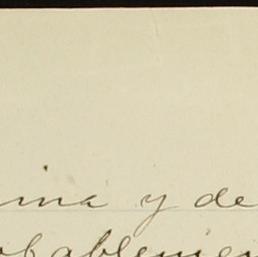 ina y de
obablemen